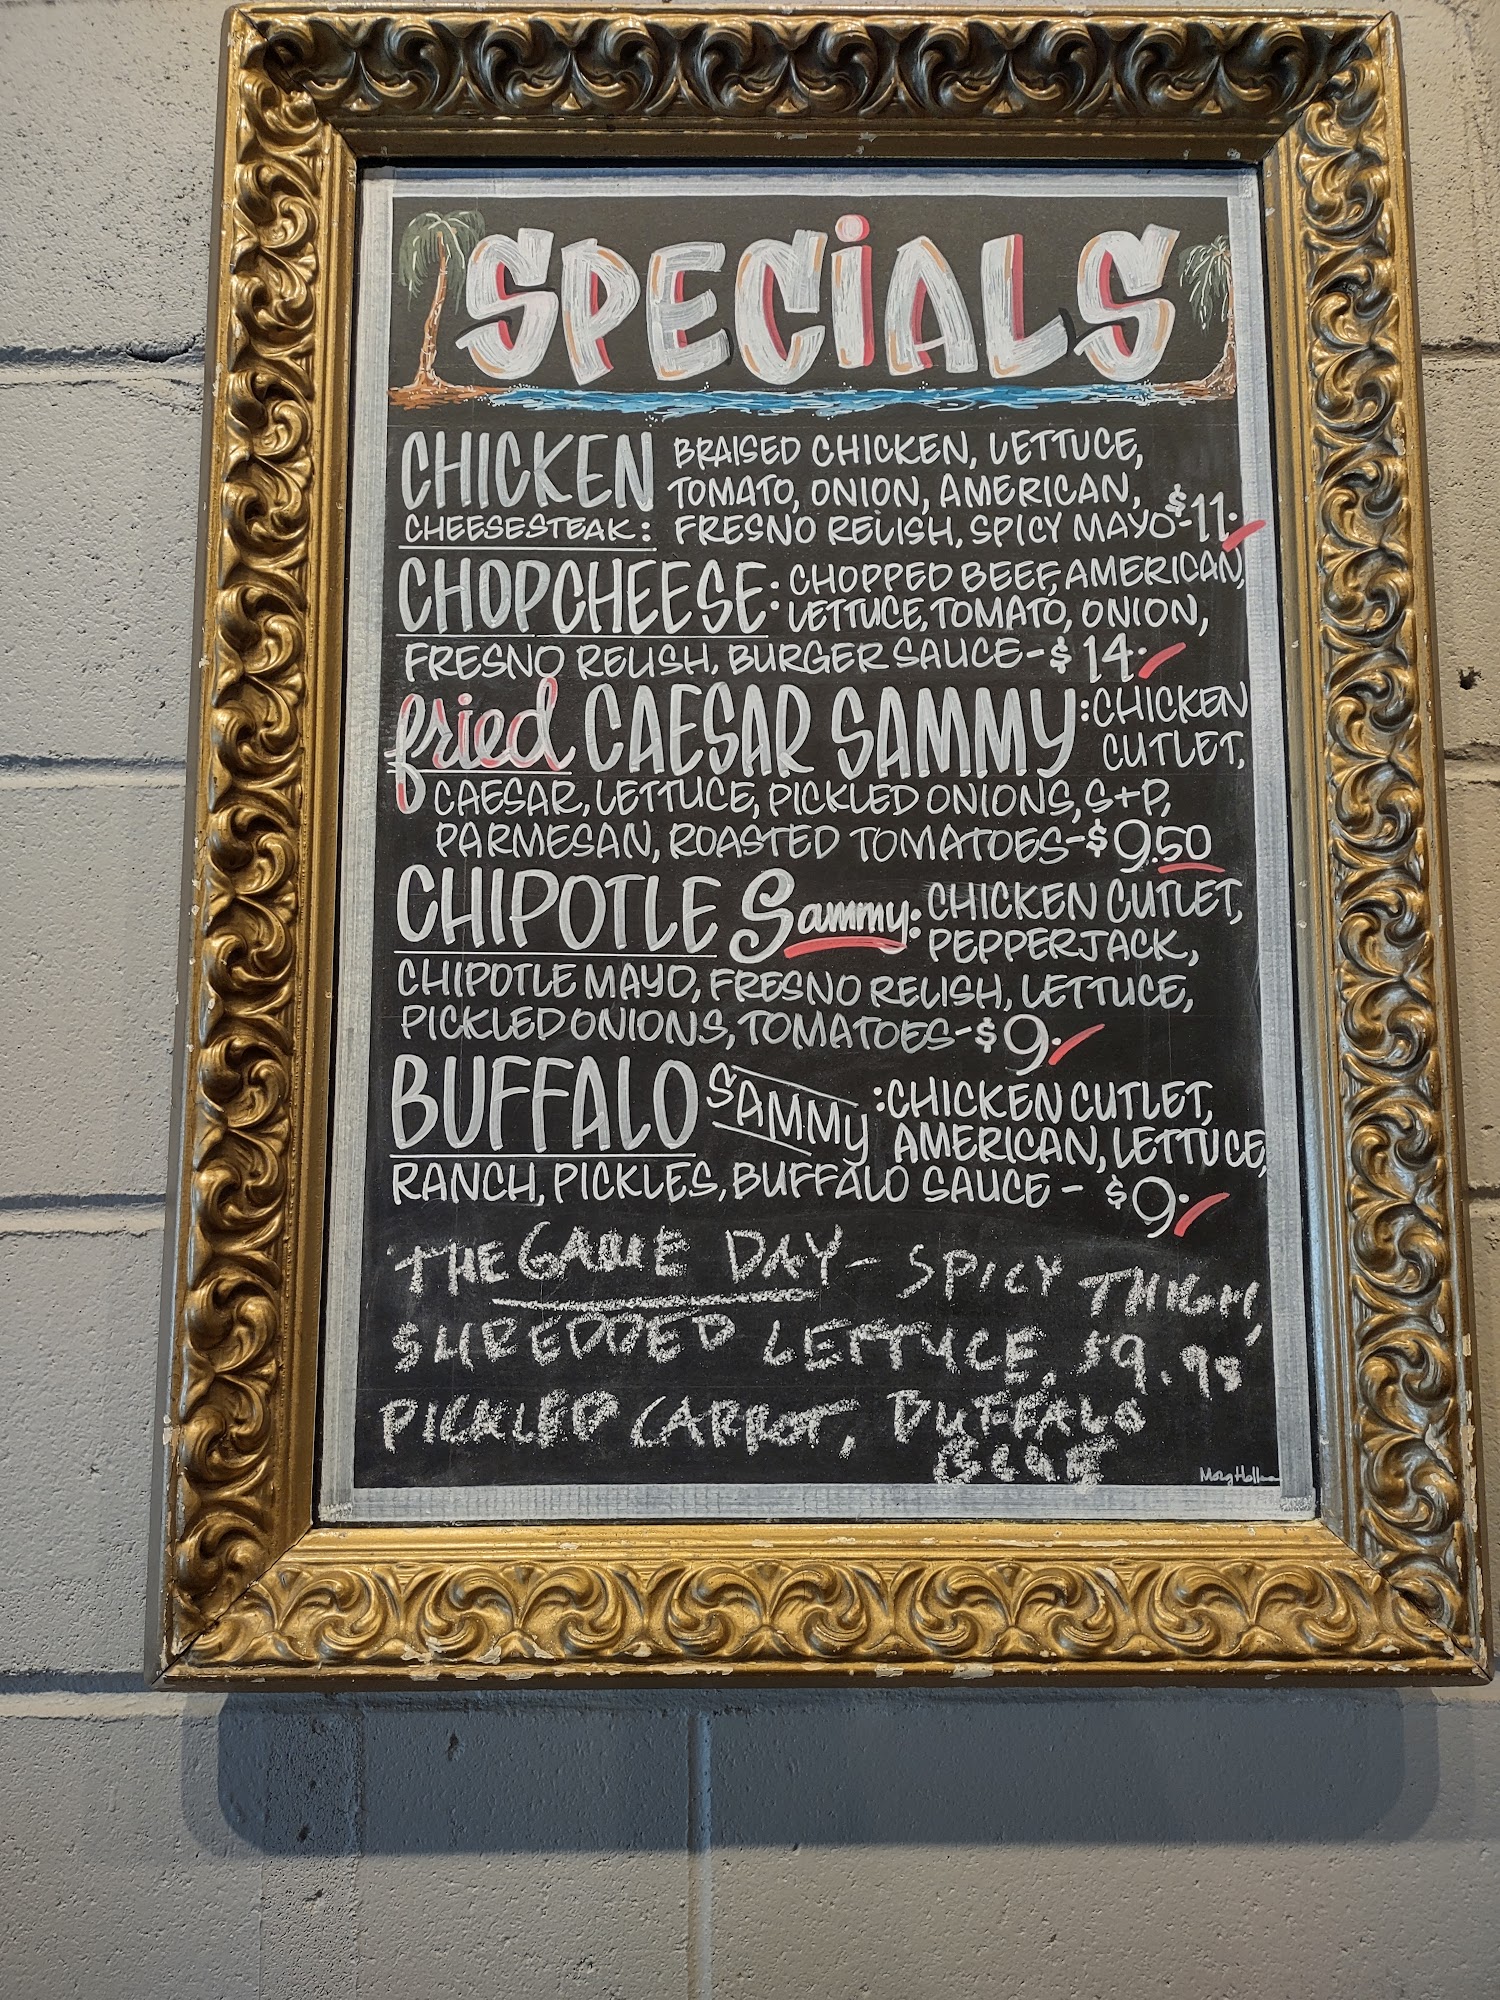 SPECiALS
CHICKEN BRAISED CHICKEN, LETTUCE,
TOMATO, ONION, AMERICAN,
CHEESESTEAK: FRESNO RELISH, SPICY MAYO-$11.
CHOPCHEESE: CHOPPED BEEF, AMERICAN,
LETTUCE, TOMATO, ONION,
FRESNO RELISH, BURGER SAUCE-$14.
fried CAESAR SAMMY: CHICKEN
CUTLET,
CAESAR, LETTUCE, PICKLED ONIONS, S+P,
PARMESAN, ROASTED TOMATOES-$9.50
CHIPOTLE Sammy: CHICKEN CUTLET,
PEPPERJACK,
CHIPOTLE MAYO, FRESNO RELISH, LETTUCE,
PICKLED ONIONS, TOMATOES-$9.
BUFFALO SAMMY: CHICKEN CUTLET,
AMERICAN, LETTUCE,
RANCH, PICKLES, BUFFALO SAUCE - $9.
THE GAME DAY- SPICY THIGH,
SHREDDED LETTUCE, $9.98
PICKLED CARROT, BUFFALO
BLUE